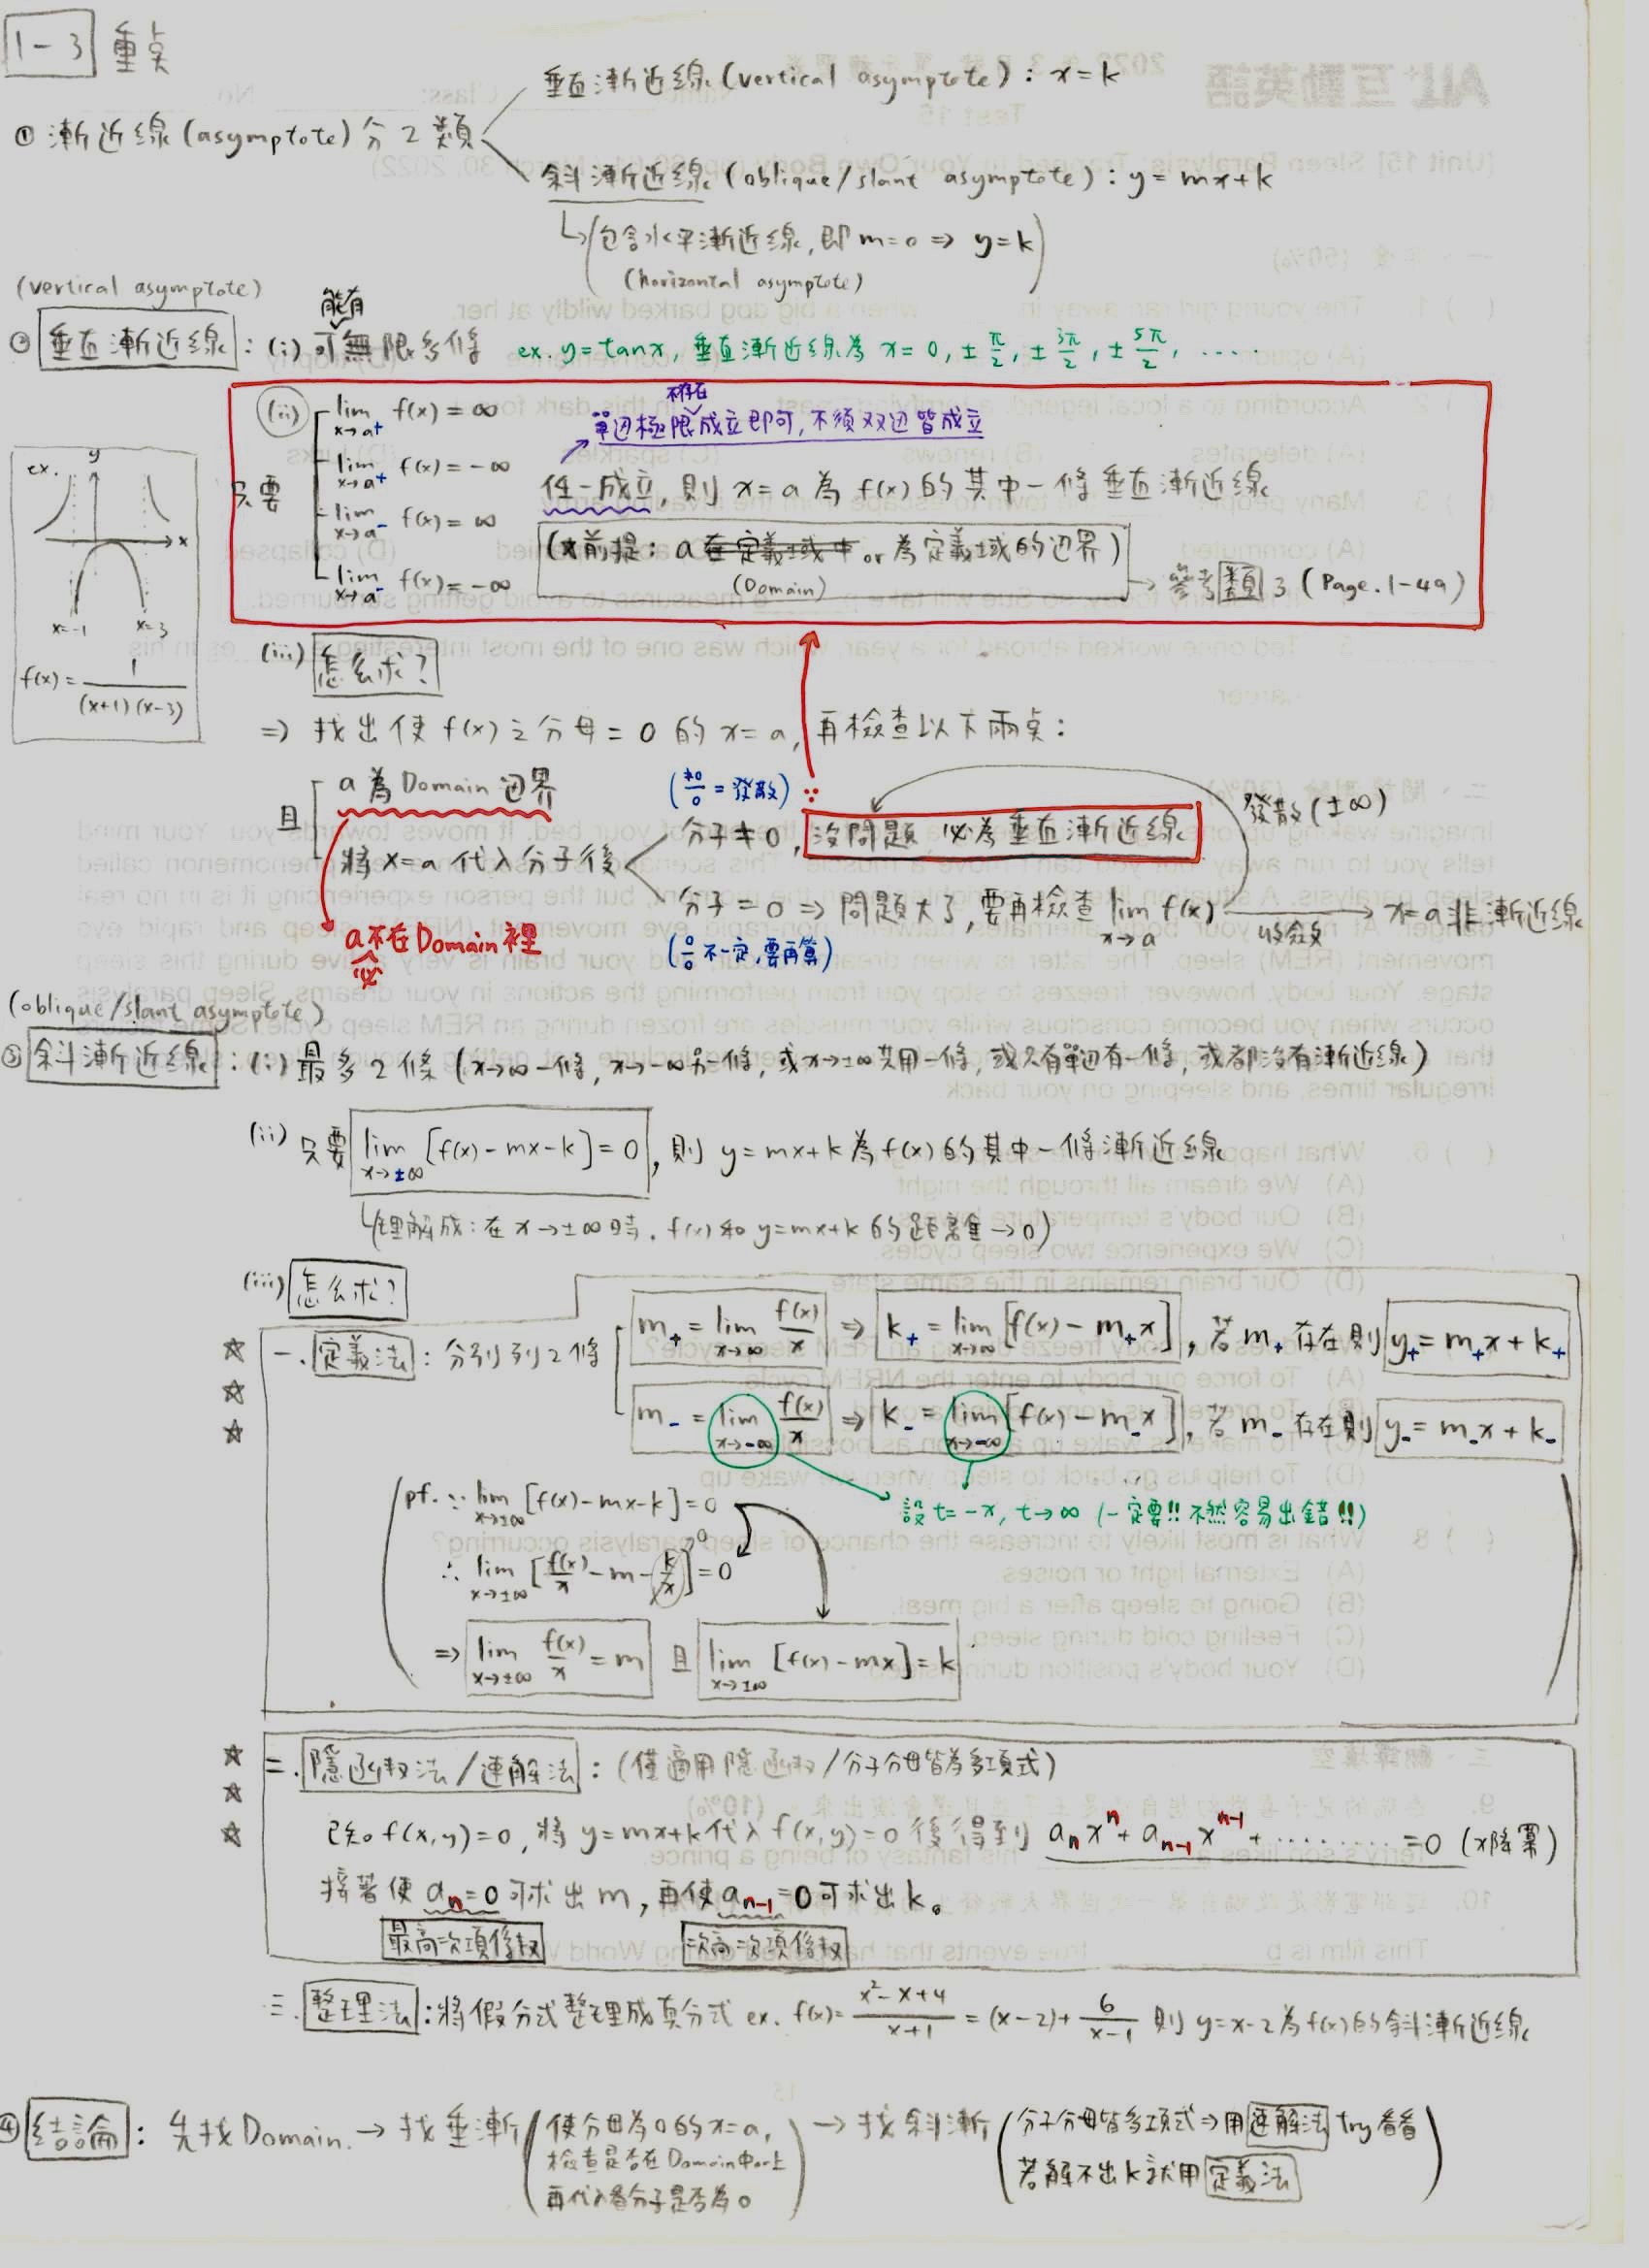 1-3 重点
① 漸近線(asymptote)分2類
垂直漸近線(vertical asymptote): x=k
斜漸近線(oblique/slant asymptote): y=mx+k
(包含水平漸近線,即 m=0 ⇒ y=k)
(horizontal asymptote)
(vertical asymptote)
② 垂直漸近線: (i) 可能有無限多條 ex. y=tanx, 垂直漸近線為 x=0, ±π/2, ±3π/2, ±5π/2, ....
(ii) 只要
lim x→a⁺ f(x)=∞
lim x→a⁺ f(x)=-∞
lim x→a⁻ f(x)=∞
lim x→a⁻ f(x)=-∞
單边極限不存在成立即可,不須双边皆成立
任一成立,則 x=a 為 f(x) 的其中一條垂直漸近線
(*前提: a 在定義域中 or 為定義域的边界)
(Domain)
→ 參考類3 (Page.1-49)
ex.
y
x
x=-1 x=3
f(x)=1/((x+1)(x-3))
(iii) 怎么求?
⇒ 找出使 f(x) 之分母=0 的 x=a, 再檢查以下兩点:
且
a 為 Domain 边界
a必不在Domain裡
將 x=a 代入分子後
(≠0/0=發散) ∵
分子≠0, 沒問題 必為垂直漸近線
分子=0 ⇒ 問題大了,要再檢查 lim x→a f(x)
(0/0 不一定,要再算)
發散(±∞)
收斂 → x=a非漸近線
(oblique/slant asymptote)
③ 斜漸近線: (i) 最多2條 (x→∞一條, x→-∞另一條, 或x→±∞共用一條, 或只有單边有一條, 或都沒有漸近線)
(ii) 只要 lim x→±∞ [f(x)-mx-k]=0, 則 y=mx+k 為 f(x) 的其中一條漸近線
(理解成: 在 x→±∞時, f(x)和 y=mx+k 的距離→0)
(iii) 怎么求?
☆☆☆ 一. 定義法: 分別列2條
m₊=lim x→∞ f(x)/x ⇒ k₊=lim x→∞ [f(x)-m₊x], 若 m₊ 存在則 y₊=m₊x+k₊
m₋=lim x→-∞ f(x)/x ⇒ k₋=lim x→-∞ [f(x)-m₋x], 若 m₋ 存在則 y₋=m₋x+k₋
設 t=-x, t→∞ (一定要!! 不然容易出錯!!)
pf. ∵ lim x→±∞ [f(x)-mx-k]=0
∴ lim x→±∞ [f(x)/x-m-k/x]=0
0
⇒ lim x→±∞ f(x)/x=m 且 lim x→±∞ [f(x)-mx]=k
☆☆☆ 二. 隱函数法/速解法: (僅適用隱函数/分子分母皆為多項式)
已知 f(x,y)=0, 將 y=mx+k代入 f(x,y)=0 後得到 aₙxⁿ+aₙ₋₁xⁿ⁻¹+........=0 (x降冪)
接著使 aₙ=0 可求出 m, 再使 aₙ₋₁=0可求出 k。
最高次項係数 次高次項係数
三. 整理法: 將假分式整理成真分式 ex. f(x)=(x²-x+4)/(x+1)=(x-2)+6/(x-1) 則 y=x-2為f(x)的斜漸近線
④ 結論: 先找Domain → 找垂漸
(使分母為0的x=a,
檢查是否在Domain中or上
再代入看分子是否為0)
→ 找斜漸
(分子分母皆多項式⇒用速解法try看看
若解不出k就用定義法)